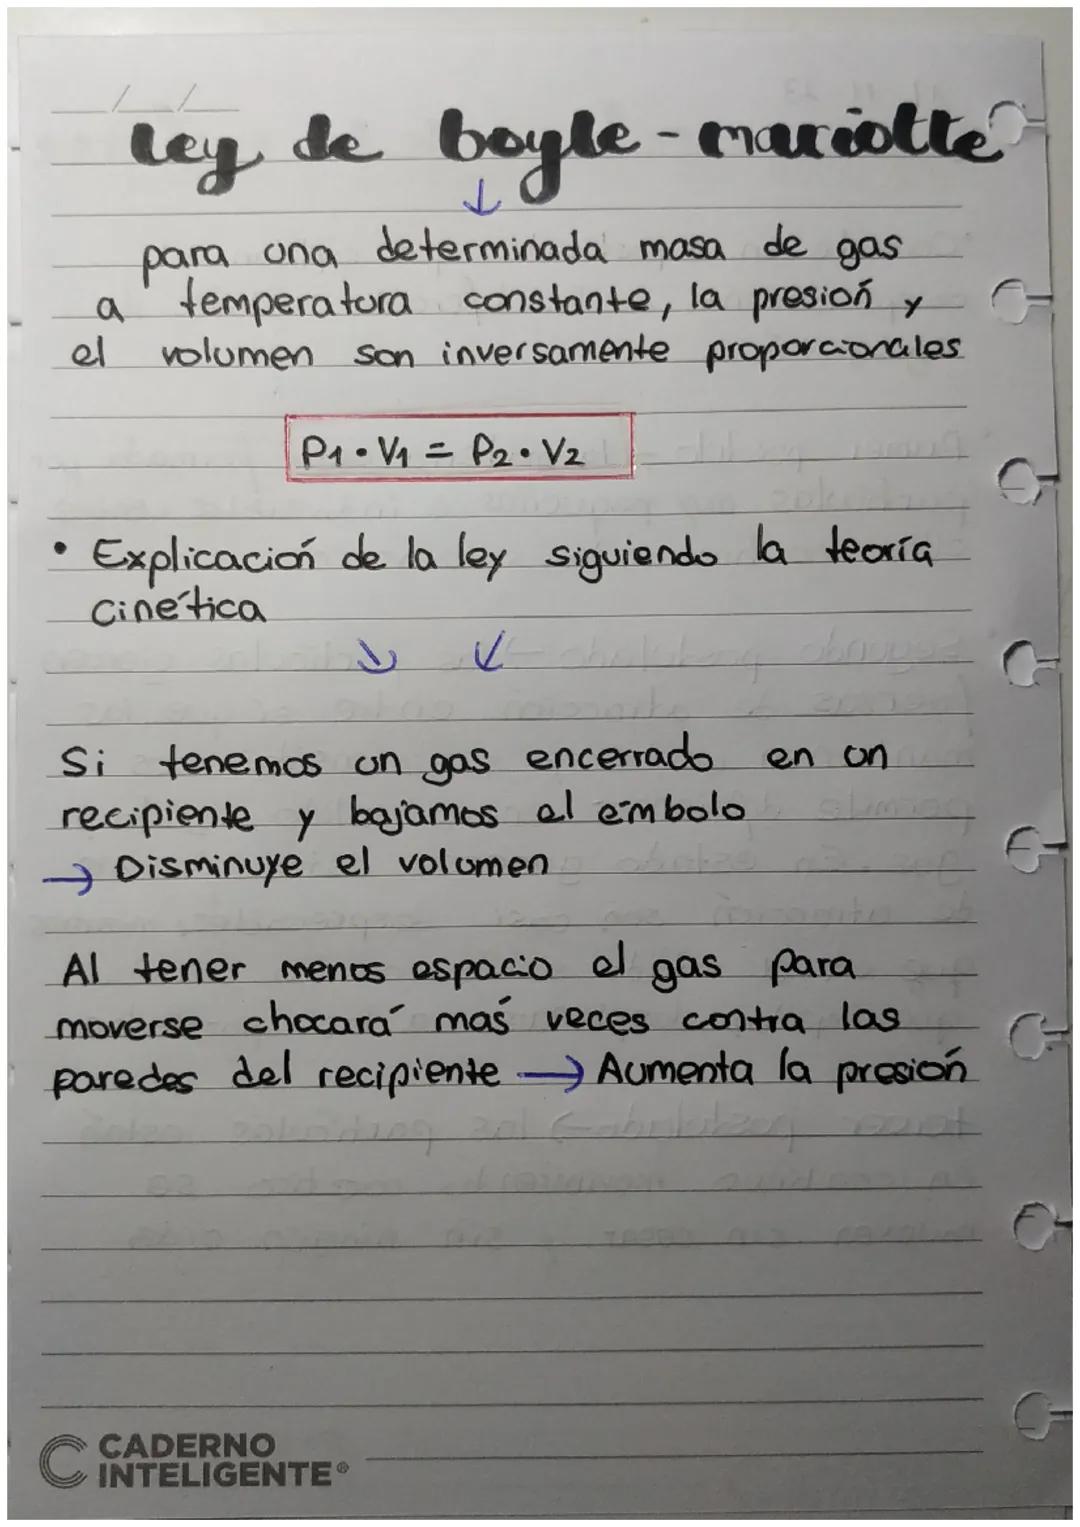 ley de boyle - mariotte
↓
para una determinada masa de gas
a temperatura constante, la presión y
el volumen son inversamente proporcionales
P1 • V1 = P2 • V2
• Explicación de la ley siguiendo la teoría
cinética
↓ ↓
Si tenemos un gas encerrado en un
recipiente y bajamos el émbolo
→ Disminuye el volumen
Al tener menos espacio el gas para
moverse chocará más veces contra las
paredes del recipiente → Aumenta la presión
CADERNO
INTELIGENTE®